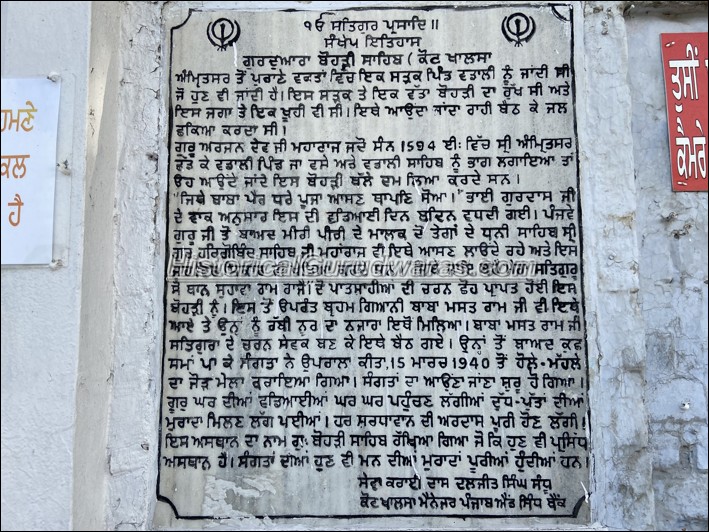 ੧ਓ ਸਤਿਗੁਰ ਪ੍ਰਸਾਦਿ॥
ਸੰਖੇਪ ਇਤਿਹਾਸ
ਗੁਰਦੁਆਰਾ ਬੋਹੜੀ ਸਾਹਿਬ (ਕੋਟ ਖਾਲਸਾ
ਅੰਮ੍ਰਿਤਸਰ ਤੋਂ ਪੁਰਾਣੇ ਵਕਤਾਂ ਵਿੱਚ ਇਕ ਸੜਕ ਪਿੰਡ ਵਡਾਲੀ ਨੂੰ ਜਾਂਦੀ ਸੀ
ਜੋ ਹੁਣ ਵੀ ਜਾਂਦੀ ਹੈ। ਇਸ ਸੜਕ ਤੇ ਇਕ ਵੱਡਾ ਬੋਹੜੀ ਦਾ ਰੁੱਖ ਸੀ ਅਤੇ
ਇਸ ਜਗਾ ਤੇ ਇਕ ਖੂਹੀ ਵੀ ਸੀ। ਇਥੇ ਆਉਂਦਾ ਜਾਂਦਾ ਰਾਹੀ ਬੈਠ ਕੇ ਜਲ
ਛਕਿਆ ਕਰਦਾ ਸੀ।
ਗੁਰੂ ਅਰਜਨ ਦੇਵ ਜੀ ਮਹਾਰਾਜ ਜਦੋਂ ਸੰਨ 1594 ਈ: ਵਿੱਚ ਸ੍ਰੀ ਅੰਮ੍ਰਿਤਸਰ
ਛੱਡ ਕੇ ਵਡਾਲੀ ਪਿੰਡ ਜਾ ਵਸੇ ਅਰੇ ਵਡਾਲੀ ਸਾਹਿਬ ਨੂੰ ਭਾਗ ਲਗਾਇਆ ਤਾਂ
ਉਹ ਆਉਂਦੇ ਜਾਂਦੇ ਇਸ ਬੋਹੜੀ ਥੱਲੇ ਦਮ ਲਿਆ ਕਰਦੇ ਸਨ।
"ਜਿਥੇ ਬਾਬਾ ਪੈਰ ਧਰੇ ਪੂਜਾ ਆਸਣ ਥਾਪਣਿ ਸੋਆ।" ਭਾਈ ਗੁਰਦਾਸ ਜੀ
ਦੇ ਵਾਕ ਅਨੁਸਾਰ ਇਸ ਦੀ ਵਡਿਆਈ ਦਿਨ ਬਦਿਨ ਵਧਦੀ ਗਈ। ਪੰਜਵੇਂ
ਗੁਰੂ ਜੀ ਤੋਂ ਬਾਅਦ ਮੀਰੀ ਪੀਰੀ ਦੇ ਮਾਲਕ ਦੋ ਤੇਗਾਂ ਦੇ ਧਨੀ ਸਾਹਿਬ ਸ੍ਰੀ
ਗੁਰੂ ਹਰਿਗੋਬਿੰਦ ਸਾਹਿਬ ਜੀ ਮਹਾਰਾਜ ਵੀ ਇਥੇ ਆਸਣ ਲਾਉਂਦੇ ਰਹੇ ਅਤੇ ਇਸ
HistoricalGurudwaras.com ਸਤਿਗੁਰ
ਸੋ ਥਾਨ ਸੁਹਾਵਾ ਰਾਮ ਰਾਜੇ" ਦੋ ਪਾਤਸ਼ਾਹੀਆਂ ਦੀ ਚਰਨ ਛੋਹ ਪ੍ਰਾਪਤ ਹੋਈ ਇਸ
ਬੋਹੜੀ ਨੂੰ। ਇਸ ਤੋਂ ਉਪਰੰਤ ਬ੍ਰਹਮ ਗਿਆਨੀ ਬਾਬਾ ਮਸਤ ਰਾਮ ਜੀ ਵੀ ਇਥੇ
ਆਏ ਤੇ ਉਨ੍ਹਾਂ ਨੂੰ ਰੱਬੀ ਨੂਰ ਦਾ ਨਜ਼ਾਰਾ ਇਥੋਂ ਮਿਲਿਆ। ਬਾਬਾ ਮਸਤ ਰਾਮ ਜੀ
ਸਤਿਗੁਰਾਂ ਦੇ ਚਰਨ ਸੇਵਕ ਬਣ ਕੇ ਇਥੇ ਬੈਠ ਗਏ। ਉਨ੍ਹਾਂ ਤੋਂ ਬਾਅਦ ਕੁਝ
ਸਮਾਂ ਪਾ ਕੇ ਸੰਗਤਾਂ ਨੇ ਉਪਰਾਲਾ ਕੀਤਾ, 15 ਮਾਰਚ 1940 ਤੋਂ ਹੌਲੇ-ਮੱਹਲੇ
ਦਾ ਜੋੜ ਮੇਲਾ ਕਰਾਇਆ ਗਿਆ। ਸੰਗਤਾਂ ਦਾ ਆਉਣਾ ਜਾਣਾ ਸ਼ੁਰੂ ਹੋ ਗਿਆ।
ਗੁਰੂ ਘਰ ਦੀਆਂ ਵਡਿਆਈਆਂ ਘਰ ਘਰ ਪਹੁੰਚਣ ਲੱਗੀਆਂ ਦੁੱਧ-ਪੁੱਤਾਂ ਦੀਆਂ
ਮੁਰਾਦਾਂ ਮਿਲਣ ਲੱਗ ਪਈਆਂ। ਹਰ ਸ਼ਰਧਾਵਾਨ ਦੀ ਅਰਦਾਸ ਪੂਰੀ ਹੋਣ ਲੱਗੀ।
ਇਸ ਅਸਥਾਨ ਦਾ ਨਾਮ ਗੁ: ਬੋਹੜੀ ਸਾਹਿਬ ਰੱਖਿਆ ਗਿਆ ਜੋ ਕਿ ਹੁਣ ਵੀ ਪ੍ਰਸਿੱਧ
ਅਸਥਾਨ ਹੈ। ਸੰਗਤਾਂ ਦੀਆਂ ਹੁਣ ਵੀ ਮਨ ਦੀਆਂ ਮੁਰਾਦਾਂ ਪੂਰੀਆਂ ਹੁੰਦੀਆਂ ਹਨ।
ਸੇਵਾ ਕਰਾਈ ਦਾਸ ਦਲਜੀਤ ਸਿੰਘ ਸੰਧੂ
ਕੋਟ ਖਾਲਸਾ ਮੈਨੇਜਰ ਪੰਜਾਬ ਐਂਡ ਸਿੰਧ ਬੈਂਕ
ਤੁਸੀਂ
ਕੈਮਰੇ
ਹੈ